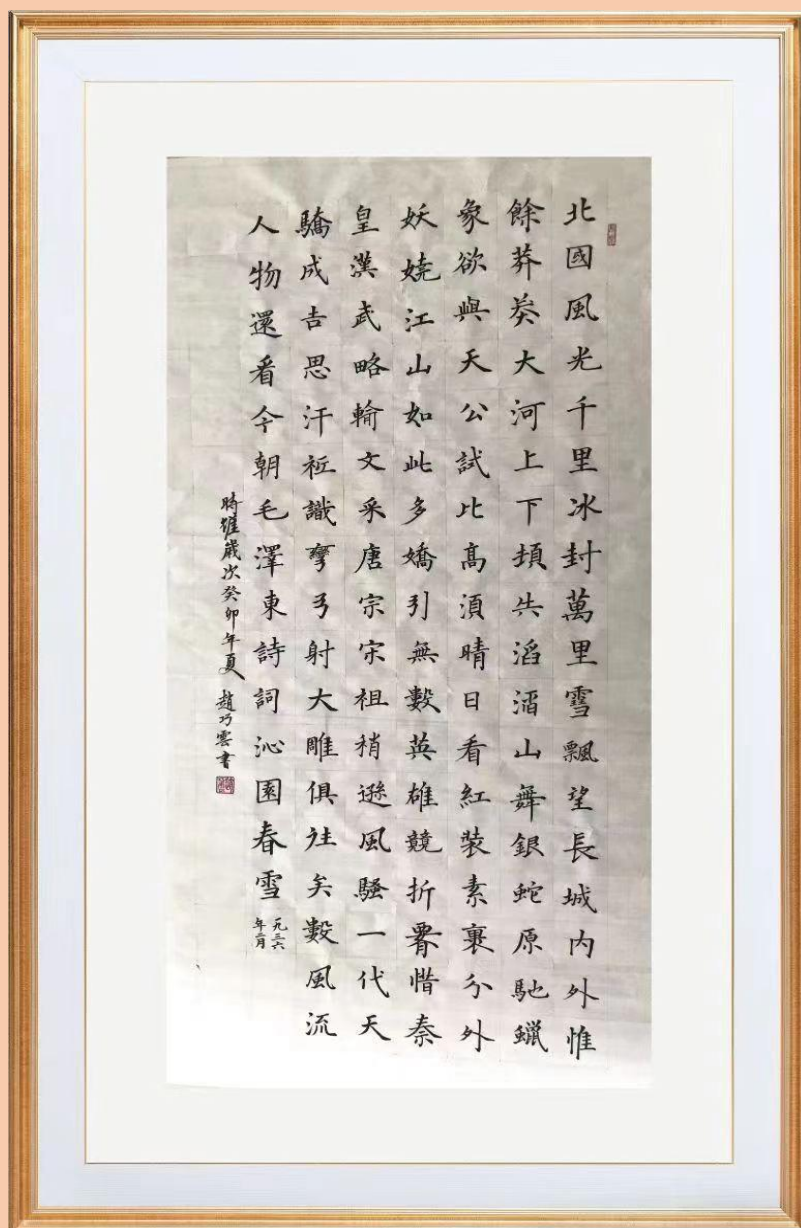 北國風光千里冰封萬里雪飄望長城内外惟
餘莽莽大河上下頓失滔滔山舞銀蛇原馳蠟
象欲與天公試比高須晴日看紅裝素裹分外
妖嬈江山如此多嬌引無數英雄競折腰惜秦
皇漢武略輸文采唐宗宋祖稍遜風騷一代天
驕成吉思汗祗識彎弓射大雕俱往矣數風流
人物還看今朝毛澤東詩詞沁園春雪
一九三六
年二月
時維歲次癸卯年夏 趙乃雲書